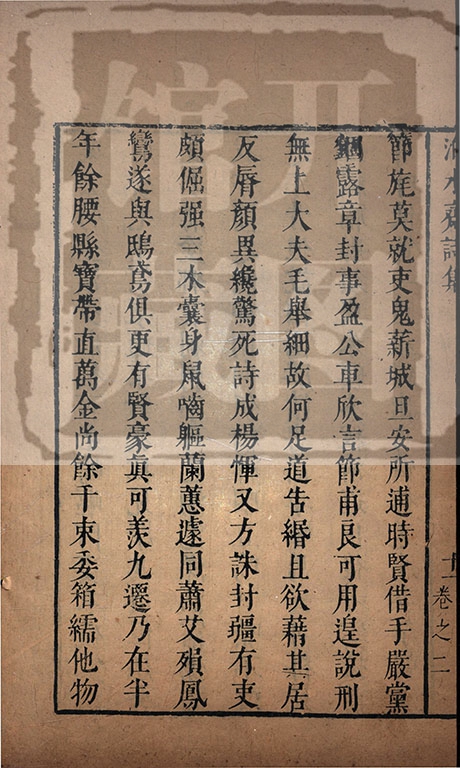 節旄莫就吏鬼新城旦安所逋時賢借手嚴黨
錮露章封事盈公車欣言節甫良可用遑說刑
無上大夫毛舉細故何足道告緡且欲藉其居
反脣顏異纔驚死詩成楊惲又方誅封疆有吏
頗倔强三水囊身鼠嚙軀蘭蕙遽同蕭艾殞鳳
鸞遂與鴟鳶俱更有賢豪真可羨九遷乃在半
年餘腰縣寶帶直萬金尚餘千束委箱繻他物
卷之二